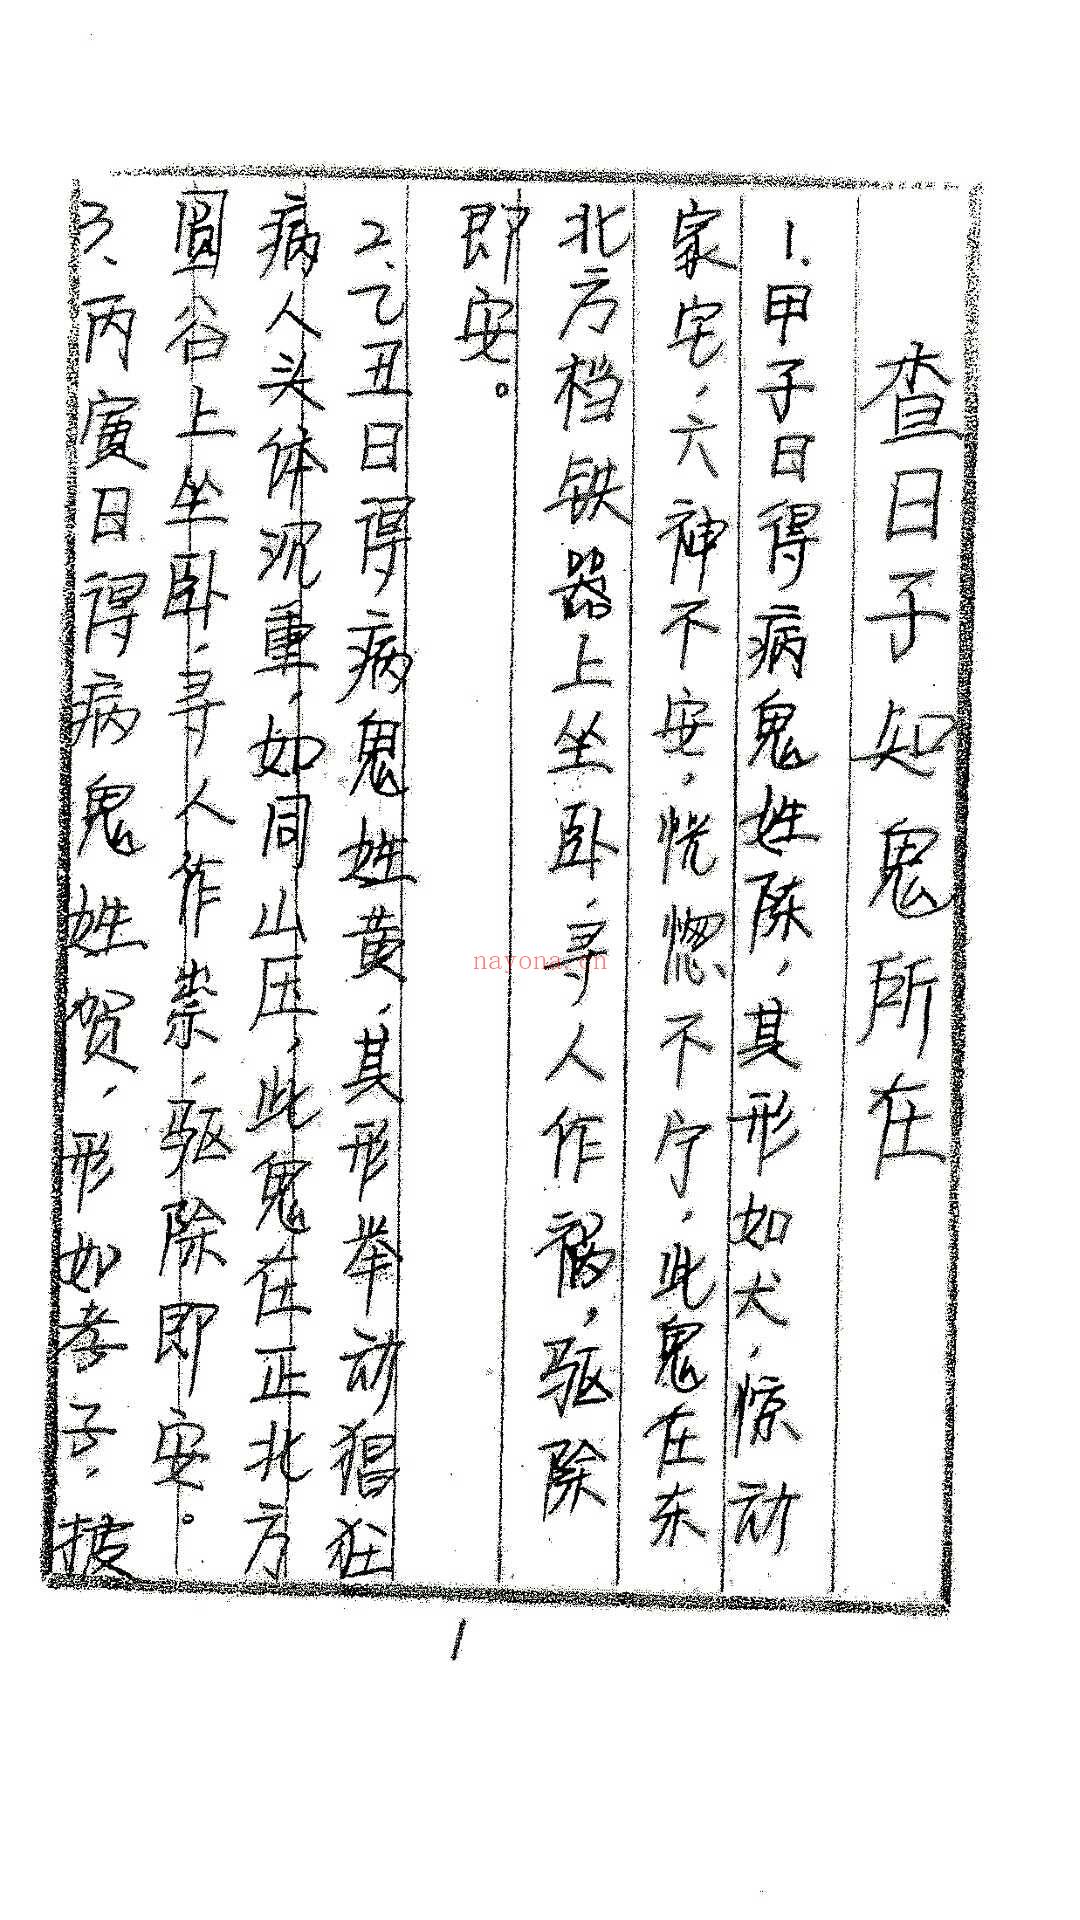 查日子知鬼所在
1.甲子日得病鬼姓陈,其形如犬,惊动
家宅,六神不安,恍惚不宁,此鬼在东
北方档铁器上坐卧,寻人作祸,驱除
即安。
2、乙丑日得病鬼姓黄,其形举动猖狂
病人头体沉重,如同山压,此鬼在正北方
圆谷上坐卧,寻人作祟,驱除即安。
3、丙寅日得病鬼姓贺,形如孝子,披
1
nayona.cn